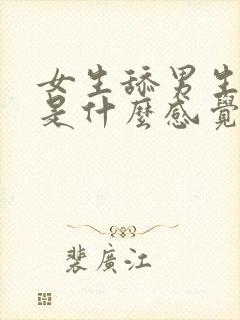 女生舔男生
是什麼感覺
裴廣江